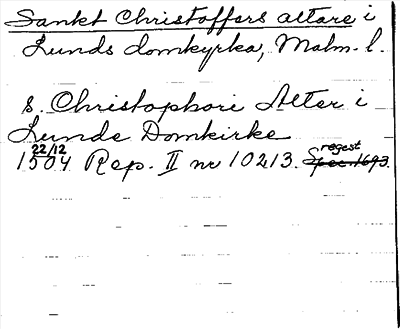 Sankt Christoffers altare i
Lunds domkyrka, Malm. l.
S. Christophori Alter i
Lunde Domkirke
22/12
1504 Rep. II nr 10213. Sregest
Spec. 1693.